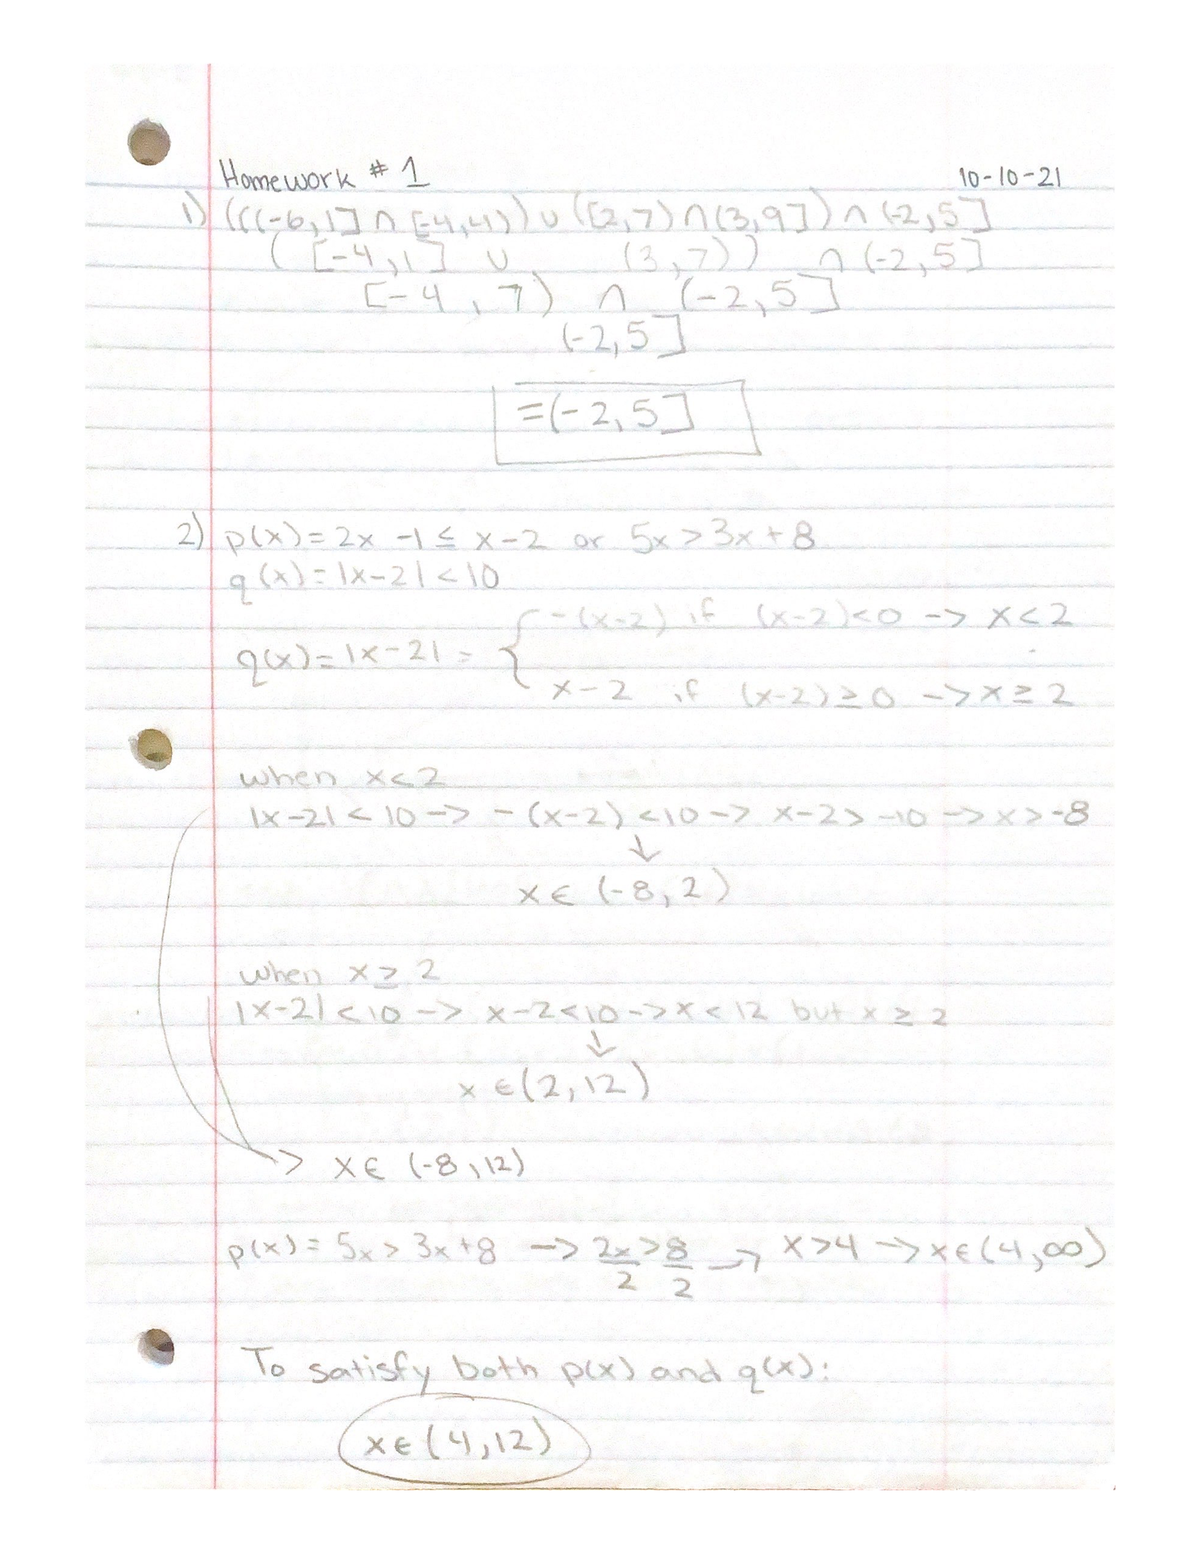 Homework # 1
10-10-21
1) (((-6,1] ∩ [-4,4)) ∪ ([2,7) ∩ (3,9]) ∩ (-2,5]
([-4,1] ∪ (3,7)) ∩ (-2,5]
[-4,7) ∩ (-2,5]
(-2,5]
=(-2,5]
2) p(x)= 2x -1 ≤ x-2 or 5x > 3x + 8
q(x)= |x-2| < 10
-(x-2) if (x-2)<0 -> x<2
q(x)= |x-2| = {
x-2 if (x-2)≥0 -> x≥2
when x<2
|x-2| < 10 -> -(x-2) <10 -> x-2> -10 -> x>-8
↓
x∈ (-8,2)
when x≥2
|x-2| <10 -> x-2<10 -> x<12 but x≥2
↓
x ∈(2,12)
-> x∈ (-8,12)
p(x)= 5x > 3x+8 -> 2x>8 -> x>4 -> x∈(4,∞)
2 2
To satisfy both p(x) and q(x):
x∈(4,12)